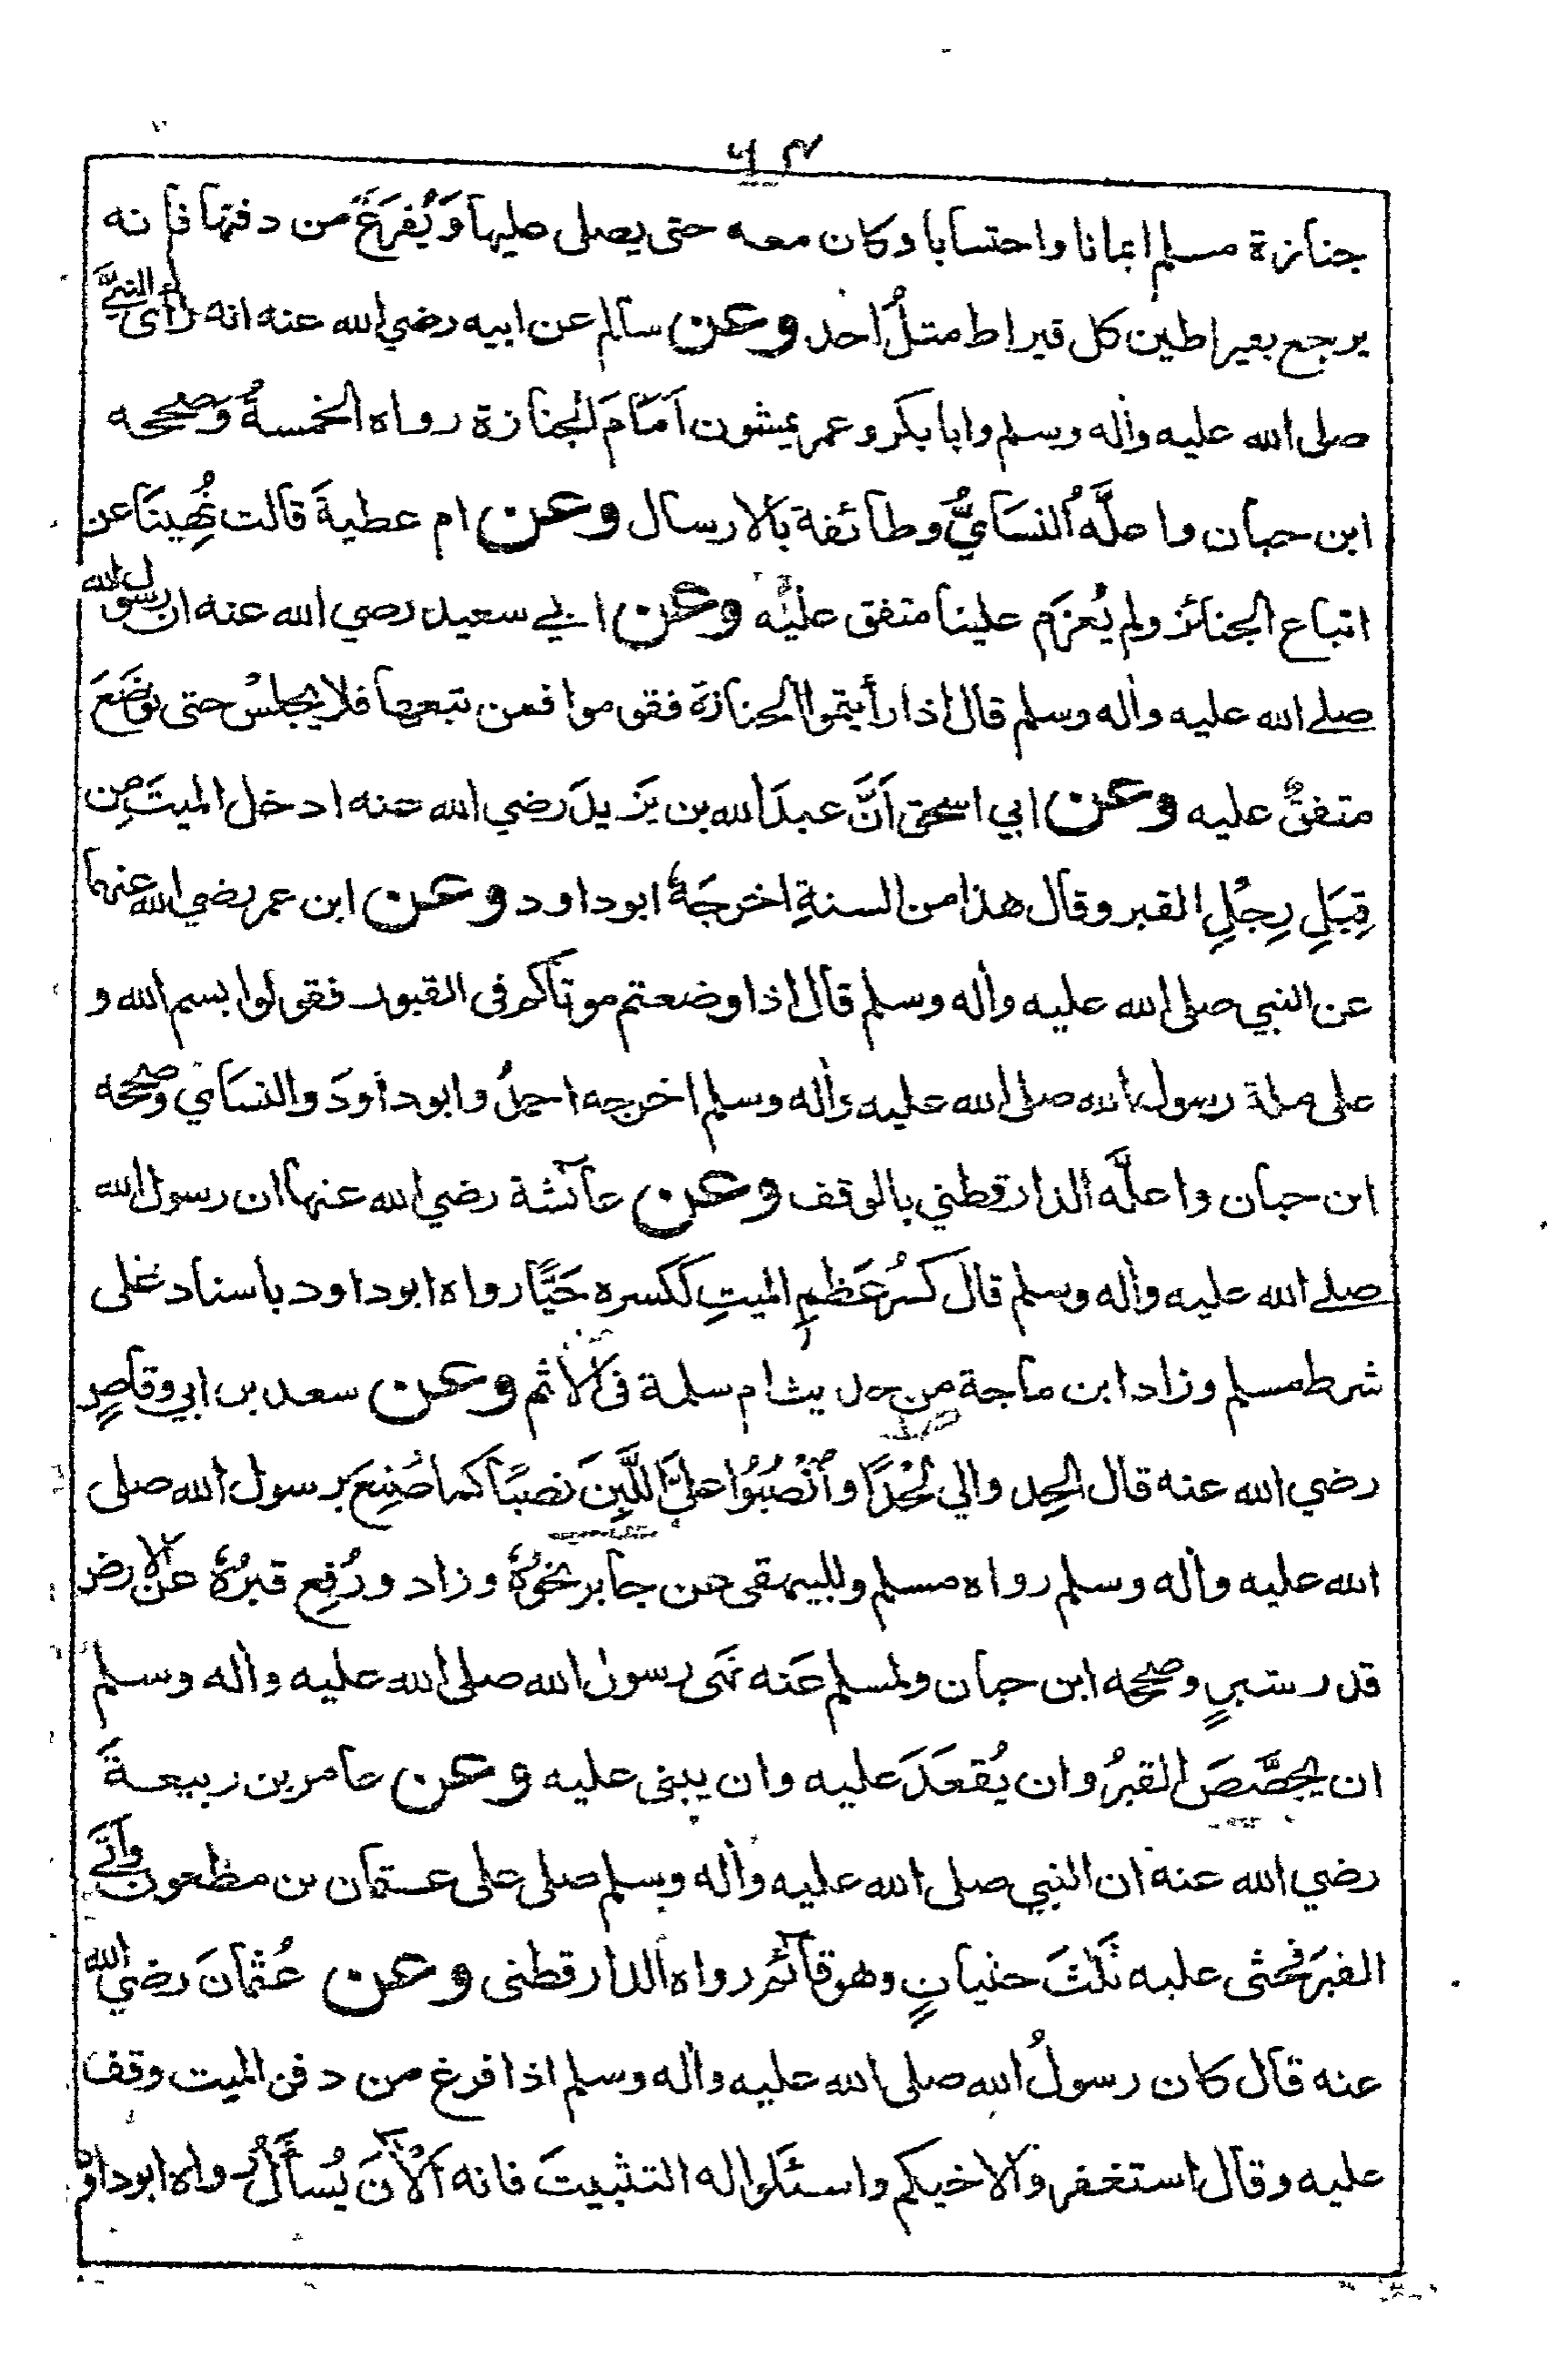 ٦٣
جنازة مسلم ايمانا واحتسابا وكان معه حتى يصلى عليها وَيُفرَغَ من دفنها فانه
يرجع بقيراطين كل قيراط مثلُ اُحد وعن سالم عن ابيه رضي الله عنه انه رأى النبيَّ
صلى الله عليه واٰله وسلم وابا بكر وعمر يمشون اَمَامَ الجنازة رواه الخمسةُ وَصححه
ابن حبان واعلَّه النسَايُّ وطائفة بالارسال وعن ام عطيةَ قالت نُهِينَا عن
اتباع الجنائز ولم يُعزَم علينا متفق عليه وعن ابي سعيد رضي الله عنه ان رسول الله
صلے الله عليه واٰله وسلم قال اذا رأيتموا الجنازة فقوموا فمن تبعها فلا يجلسْ حتى توضَعَ
متفقٌ عليه وعن ابي اسحٰق اَنَّ عبدَ الله بن يَزيدَ رضي الله عنه ادخل الميتَ مِن
قِبَلِ رِجْلِ القبر وقال هذا من السنةِ اخرجَهُ ابوداود وعن ابن عمر رضي الله عنهما
عن النبي صلى الله عليه واٰله وسلم قال اذا وضعتم موتاكم فى القبور فقولوا بسم الله و
على ملة رسول الله صلى الله عليه واٰله وسلم اخرجه احمدُ وابوداودَ والنسَاي وصححه
ابن حبان واعلَّه الدارقطني بالوقف وعن عائشة رضي الله عنها ان رسول الله
صلے الله عليه واٰله وسلم قال كسرُ عَظمِ الميتِ ككسره حَيًّا رواه ابوداود باسناد على
شرط مسلم وزاد ابن ماجة من حديث ام سلمة فى الاثم وعن سعد بن ابي وقاصٍ
رضي الله عنه قال الحِدوا لي لَحْدًا وَانْصُبُوا عليَّ اللَّبِنَ نصبًا كما صُنِعَ برسول الله صلى
الله عليه واٰله وسلم رواه مسلم وللبيهقى عن جابر نحوُهُ وزاد ورُفِع قبرُهُ عن الارض
قدر شبرٍ وصححه ابن حبان ولمسلم عَنه نهَى رسول الله صلى الله عليه واٰله وسلم
ان يجصَّصَ القبرُ وان يُقعَدَ عليه وان يبنى عليه وعن عامر بن ربيعةَ
رضي الله عنه ان النبي صلى الله عليه واٰله وسلم صلى على عثمان بن مظعون وَاَتَى
القبرَ فحثى عليه ثلٰثَ حثياتٍ وهو قائم رواه الدارقطنى وعن عُثمانَ رضي الله
عنه قال كان رسولُ الله صلى الله عليه واٰله وسلم اذا فرغ من دفن الميت وقف
عليه وقال استغفروا لاخيكم واسئلوا له التثبيتَ فانه اَلْاٰنَ يُسأَلُ رواه ابوداود